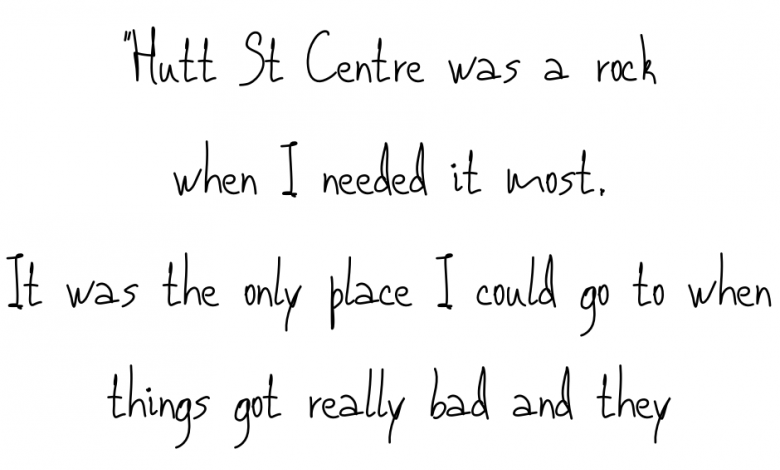 "Hutt St Centre was a rock
when I needed it most.
It was the only place I could go to when
things got really bad and they